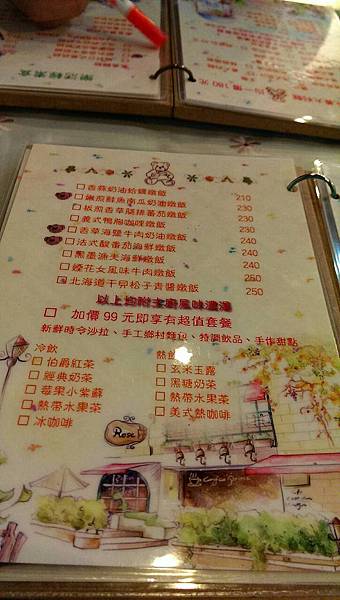 □香蒜奶油蛤蠣燉飯 210
□嫩煎鮮魚南瓜奶油燉飯 230
□板煎香草雞排蕃茄燉飯 230
□義式鴨胸咖哩燉飯 230
□香草海鹽牛肉奶油燉飯 240
□法式酸蕃茄海鮮燉飯 240
□黑墨漁夫海鮮燉飯 240
□煙花女風味牛肉燉飯 250
□北海道干貝松子青醬燉飯 250
以上均附主廚風味濃湯
□ 加價 99 元即享有超值套餐
新鮮時令沙拉、手工鄉村麵包、特調飲品、手作甜點
冷飲
□伯爵紅茶
□經典奶茶
□莓果小紫蘇
□熱帶水果茶
□冰咖啡
熱飲
□玄米玉露
□黑糖奶茶
□熱帶水果茶
□美式熱咖啡
Rose